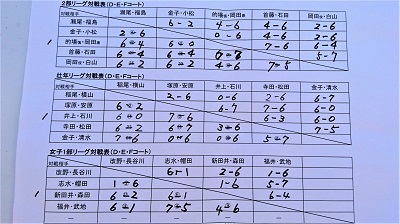 2部リーグ対戦表(D・E・Fコート)
対戦相手 瀬尾・福島 金子・小松 的場・岡田 首藤・石田 岡田・白山
瀬尾・福島 6-2 4-6 4-6 2-6
金子・小松 2-6 0-6 4-6 2-6
的場・岡田 6-4 6-0 7-6 6-4
首藤・石田 6-4 6-4 5-7
岡田・白山 6-2 6-2 4-6 7-5
壮年リーグ対戦表(D・E・Fコート)
対戦相手 稲尾・横山 塚原・安原 井上・石川 寺田・松田 金子・清水
稲尾・横山 2-6 0-6 2-6 6-7
塚原・安原 6-2 6-7 7-6 6-0
井上・石川 6-0 7-6 6-3 6-0
寺田・松田 6-2 6-7 3-6 7-5
金子・清水 7-6 0-6 0-6 5-7
女子1部リーグ対戦表(D・E・Fコート)
対戦相手 改野・長谷川 志水・帽田 新田井・森田 福井・武地
改野・長谷川 6-1 2-6 1-6
志水・帽田 1-6 1-6 5-7
新田井・森田 6-2 6-1 6-4
福井・武地 6-1 7-5 4-6